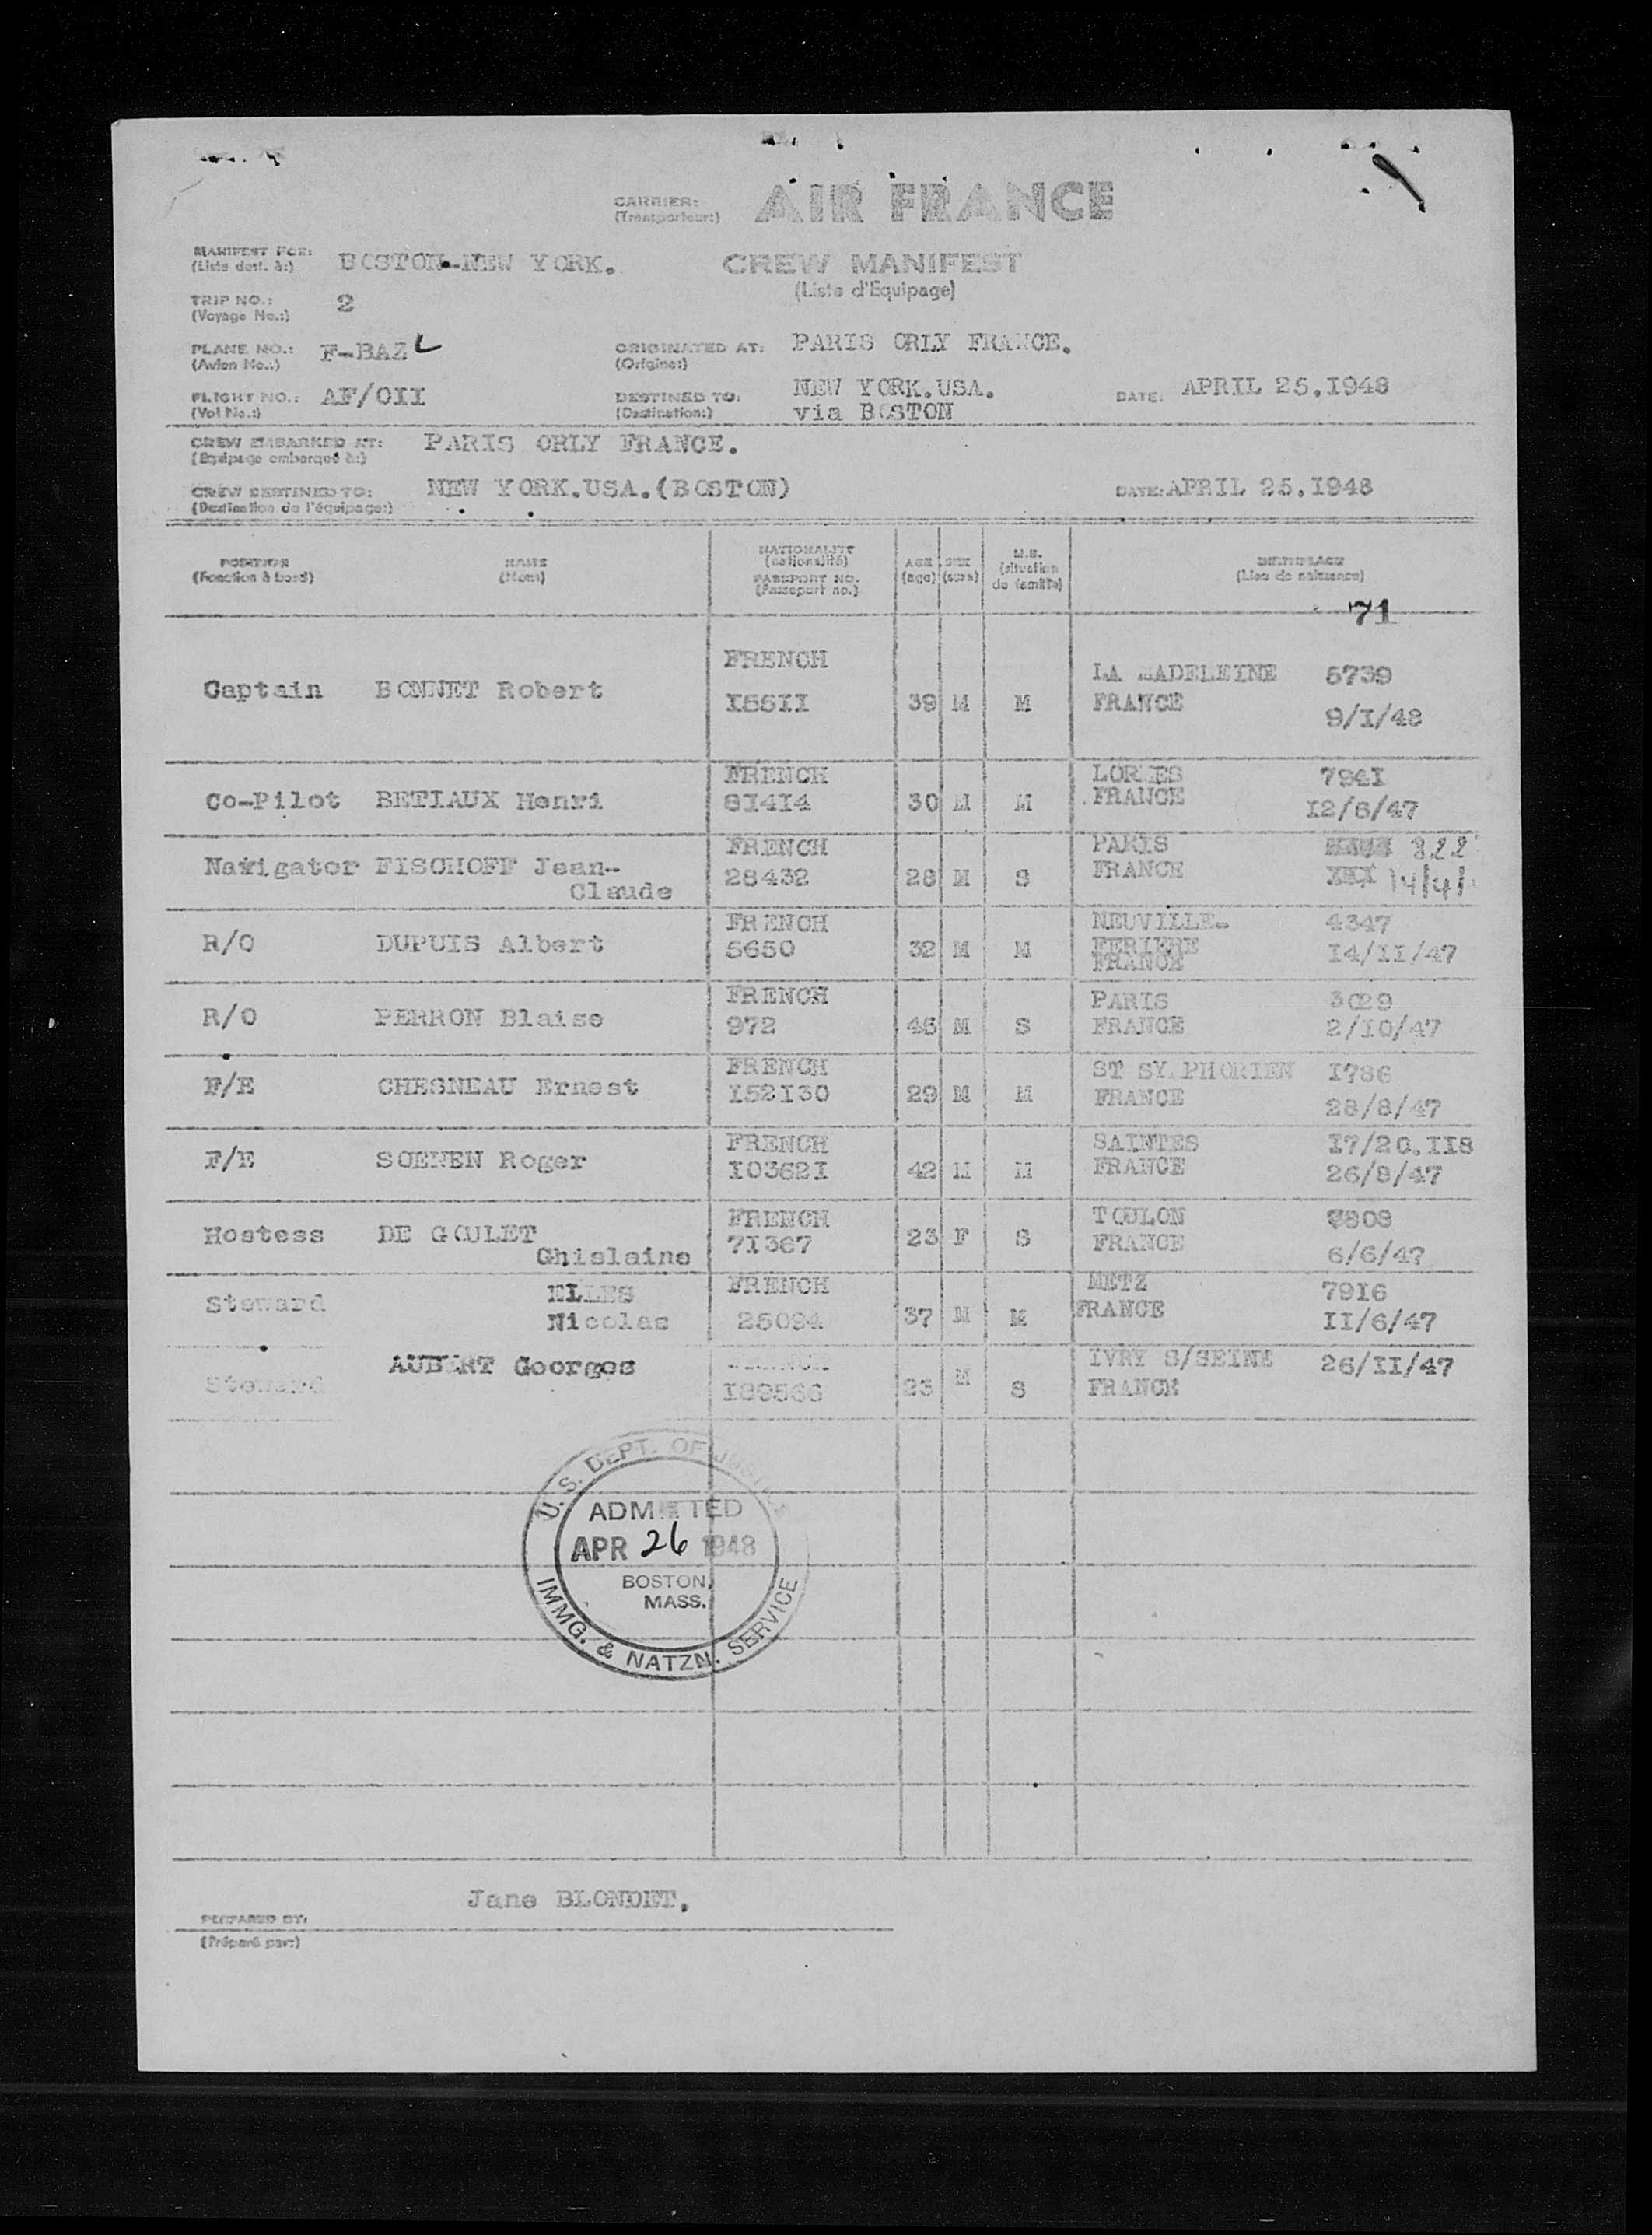 CARRIER: AIR FRANCE
(Transporteur:)
MANIFEST FOR: BOSTON-NEW YORK. CREW MANIFEST
(Liste dest. à:) (Liste d'Equipage)
TRIP NO.: 2
(Voyage No.:)
PLANE NO.: F-BAZL ORIGINATED AT: PARIS ORLY FRANCE.
(Avion No.:) (Origine:)
FLIGHT NO.: AF/0II DESTINED TO: NEW YORK.USA. DATE: APRIL 25.I948
(Vol No.:) (Destination:) via BOSTON
CREW EMBARKED AT: PARIS ORLY FRANCE.
(Equipage embarqué à:)
CREW DESTINED TO: NEW YORK.USA.(BOSTON) DATE: APRIL 25.I948
(Destination de l'équipage:)
POSITION NAME NATIONALITY AGE SEX M.S. BIRTHPLACE
(Fonction à bord) (Nom) (nationalité) (age) (sexe) (situation de famille) (Lieu de naissance)
PASSPORT NO.
(Passeport no.)
71
FRENCH
Captain BONNET Robert I55II 39 M M LA MADELEINE 5739
FRANCE 9/I/48
FRENCH LOR ES 794I
Co-Pilot BETIAUX Henri 8I4I4 30 M M FRANCE I2/6/47
FRENCH PARIS 822
Navigator FISCHOFF Jean- 28432 28 M S FRANCE 14/4/
Claude
FRENCH NEUVILLE- 4347
R/O DUPUIS Albert 5650 32 M M FERIERE I4/II/47
FRANCE
FRENCH PARIS 3029
R/O PERRON Blaise 972 45 M S FRANCE 2/I0/47
FRENCH ST SY PHORIEN I786
F/E CHESNEAU Ernest I52I30 29 M M FRANCE 28/8/47
FRENCH SAINTES I7/20.II8
F/E SOENEN Roger I0362I 42 M M FRANCE 26/8/47
FRENCH TOULON 808
Hostess DE GOULET 7I367 23 F S FRANCE 6/6/47
Ghislaine
ELLES FRENCH METZ 79I6
Steward Nicolas 25094 37 M M FRANCE II/6/47
AUBERT Georges IVRY S/SEINE 26/II/47
Steward I89566 23 M S FRANCE
U.S. DEPT. OF JUSTICE
ADMITTED
APR 26 1948
BOSTON,
MASS.
IMMG. & NATZN. SERVICE
Jane BLONDET.
PREPARED BY:
(Préparé par:)